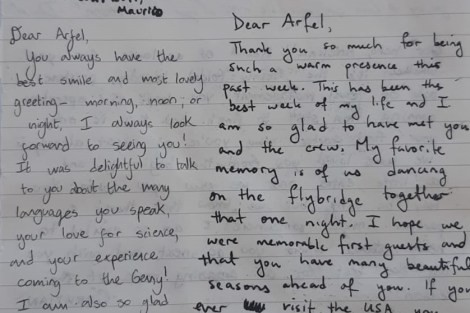 Maurice
Dear Arfel,
You always have the
best smile and most lovely
greeting – morning, noon, or
night, I always look
forward to seeing you!
It was delightful to talk
to you about the many
languages you speak,
your love for science,
and your experience
coming to the Genny!
I am also so glad
Dear Arfel,
Thank you so much for being
such a warm presence this
past week. This has been the
best week of my life and I
am so glad to have met you
and the crew. My favorite
memory is of us dancing
on the flybridge together
that one night. I hope we
were memorable first guests and
that you have many beautiful
seasons ahead of you. If you
ever visit the USA you